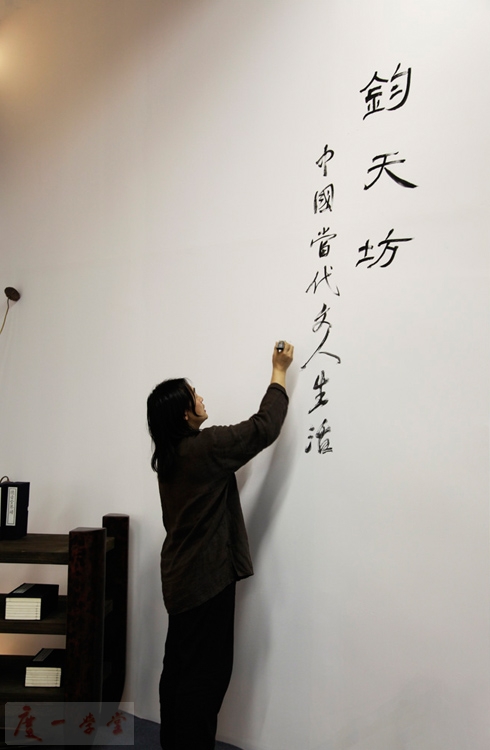 鈞天坊
中國當代文人生活
度一學堂